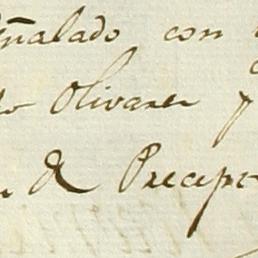 eñalado con
Olivares y
de Precept